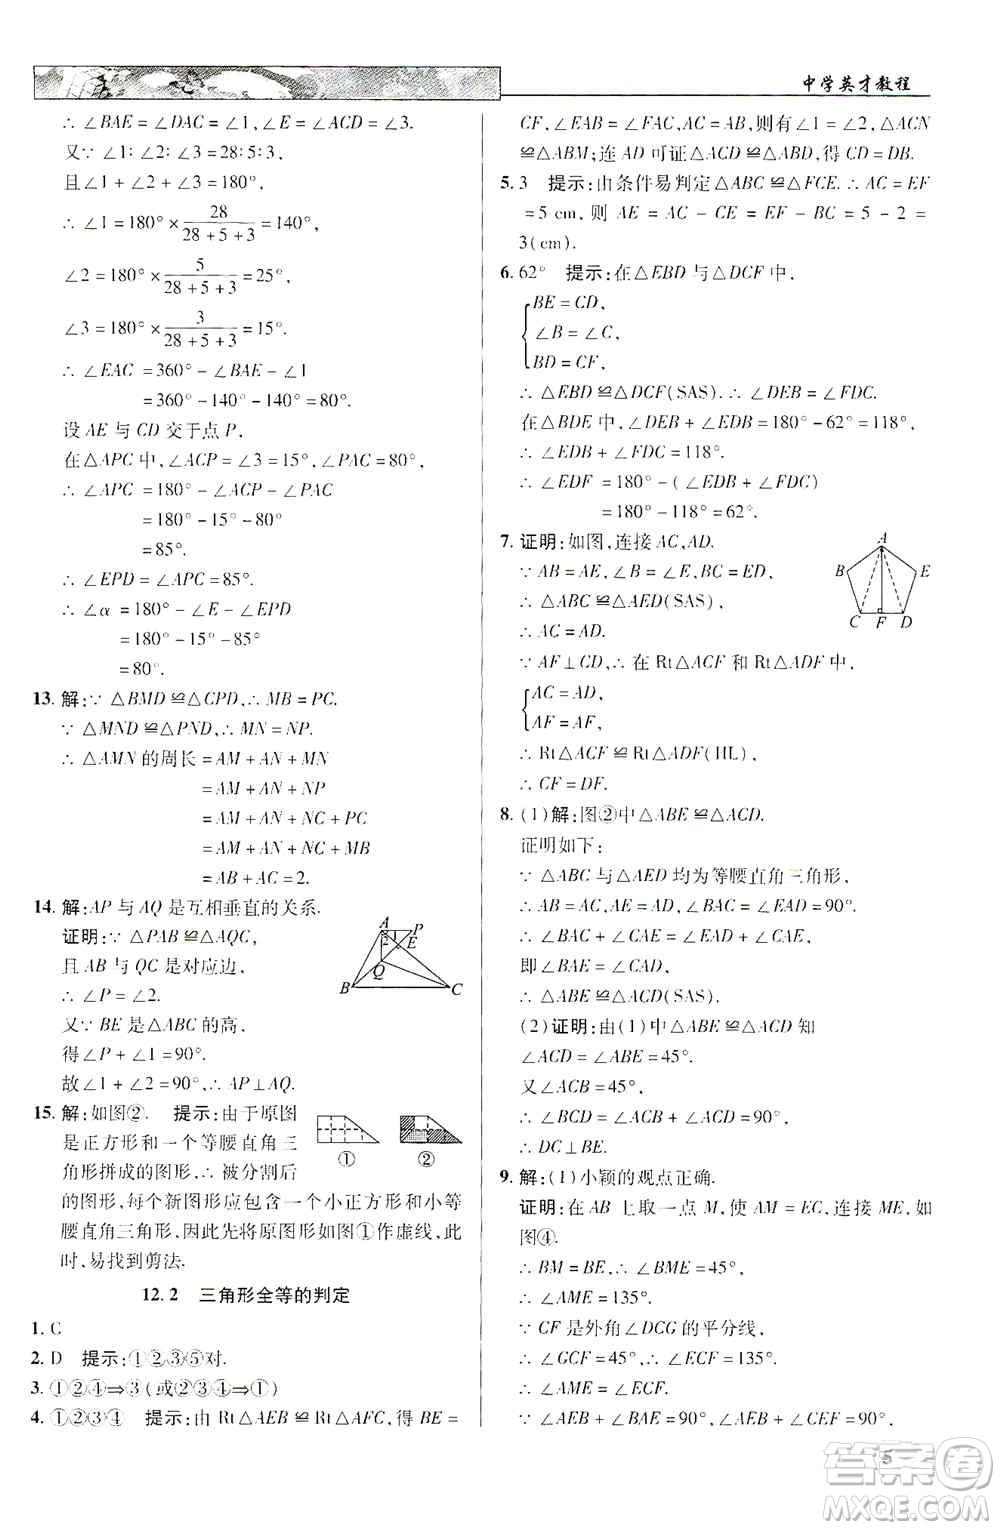 中学英才教程
∴ ∠BAE = ∠DAC = ∠1, ∠E = ∠ACD = ∠3.
又∵ ∠1∶∠2∶∠3 = 28∶5∶3,
且∠1 + ∠2 + ∠3 = 180°,
∴ ∠1 = 180° × 28/(28 + 5 + 3) = 140°,
∠2 = 180° × 5/(28 + 5 + 3) = 25°,
∠3 = 180° × 3/(28 + 5 + 3) = 15°.
∴ ∠EAC = 360° − ∠BAE − ∠1
= 360° − 140° − 140° = 80°.
设 AE 与 CD 交于点 P,
在△APC 中, ∠ACP = ∠3 = 15°, ∠PAC = 80°,
∴ ∠APC = 180° − ∠ACP − ∠PAC
= 180° − 15° − 80°
= 85°.
∴ ∠EPD = ∠APC = 85°.
∴ ∠α = 180° − ∠E − ∠EPD
= 180° − 15° − 85°
= 80°.
13. 解:∵ △BMD ≌ △CPD, ∴ MB = PC.
∵ △MND ≌ △PND, ∴ MN = NP.
∴ △AMN 的周长 = AM + AN + MN
= AM + AN + NP
= AM + AN + NC + PC
= AM + AN + NC + MB
= AB + AC = 2.
14. 解:AP 与 AQ 是互相垂直的关系.
证明:∵ △PAB ≌ △AQC,
且 AB 与 QC 是对应边,
∴ ∠P = ∠2.
又∵ BE 是△ABC 的高,
得∠P + ∠1 = 90°.
故∠1 + ∠2 = 90°, ∴ AP⊥AQ.
A P 2 1 E Q B C
15. 解:如图②. 提示:由于原图
是正方形和一个等腰直角三
角形拼成的图形, ∴ 被分割后
的图形,每个新图形应包含一个小正方形和小等
腰直角三角形,因此先将原图形如图①作虚线,此
时,易找到剪法.
① ②
12.2 三角形全等的判定
1. C
2. D 提示:①②③⑤对.
3. ①②④⇒③(或②③④⇒①)
4. ①②③④ 提示:由 Rt△AEB ≌ Rt△AFC,得 BE =
CF, ∠EAB = ∠FAC, AC = AB,则有∠1 = ∠2, △ACN
≌△ABM;连 AD 可证△ACD ≌ △ABD,得 CD = DB.
5. 3 提示:由条件易判定△ABC ≌ △FCE. ∴ AC = EF
= 5 cm,则 AE = AC − CE = EF − BC = 5 − 2 =
3(cm).
6. 62° 提示:在△EBD 与△DCF 中,
BE = CD,
∠B = ∠C,
BD = CF.
∴ △EBD ≌ △DCF(SAS). ∴ ∠DEB = ∠FDC.
在△BDE 中, ∠DEB + ∠EDB = 180° − 62° = 118°,
∴ ∠EDB + ∠FDC = 118°.
∴ ∠EDF = 180° − (∠EDB + ∠FDC)
= 180° − 118° = 62°.
7. 证明:如图,连接 AC, AD.
∵ AB = AE, ∠B = ∠E, BC = ED,
∴ △ABC ≌ △AED(SAS),
∴ AC = AD.
∵ AF⊥CD, ∴ 在 Rt△ACF 和 Rt△ADF 中,
AC = AD,
AF = AF,
∴ Rt△ACF ≌ Rt△ADF(HL),
∴ CF = DF.
A B E C F D
8. (1)解:图②中△ABE ≌ △ACD.
证明如下:
∵ △ABC 与△AED 均为等腰直角三角形,
∴ AB = AC, AE = AD, ∠BAC = ∠EAD = 90°,
∴ ∠BAC + ∠CAE = ∠EAD + ∠CAE,
即∠BAE = ∠CAD,
∴ △ABE ≌ △ACD(SAS).
(2)证明:由(1)中△ABE ≌ △ACD 知
∠ACD = ∠ABE = 45°.
又∠ACB = 45°,
∴ ∠BCD = ∠ACB + ∠ACD = 90°,
∴ DC⊥BE.
9. 解:(1)小颖的观点正确.
证明:在 AB 上取一点 M,使 AM = EC,连接 ME,如
图④.
∴ BM = BE, ∴ ∠BME = 45°,
∴ ∠AME = 135°.
∵ CF 是外角∠DCG 的平分线,
∴ ∠GCF = 45°, ∴ ∠ECF = 135°.
∴ ∠AME = ∠ECF.
∵ ∠AEB + ∠BAE = 90°, ∠AEB + ∠CEF = 90°,
5
答案圈
MXQE.COM